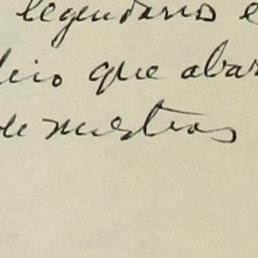 legendarios e
que abar
de nuestras